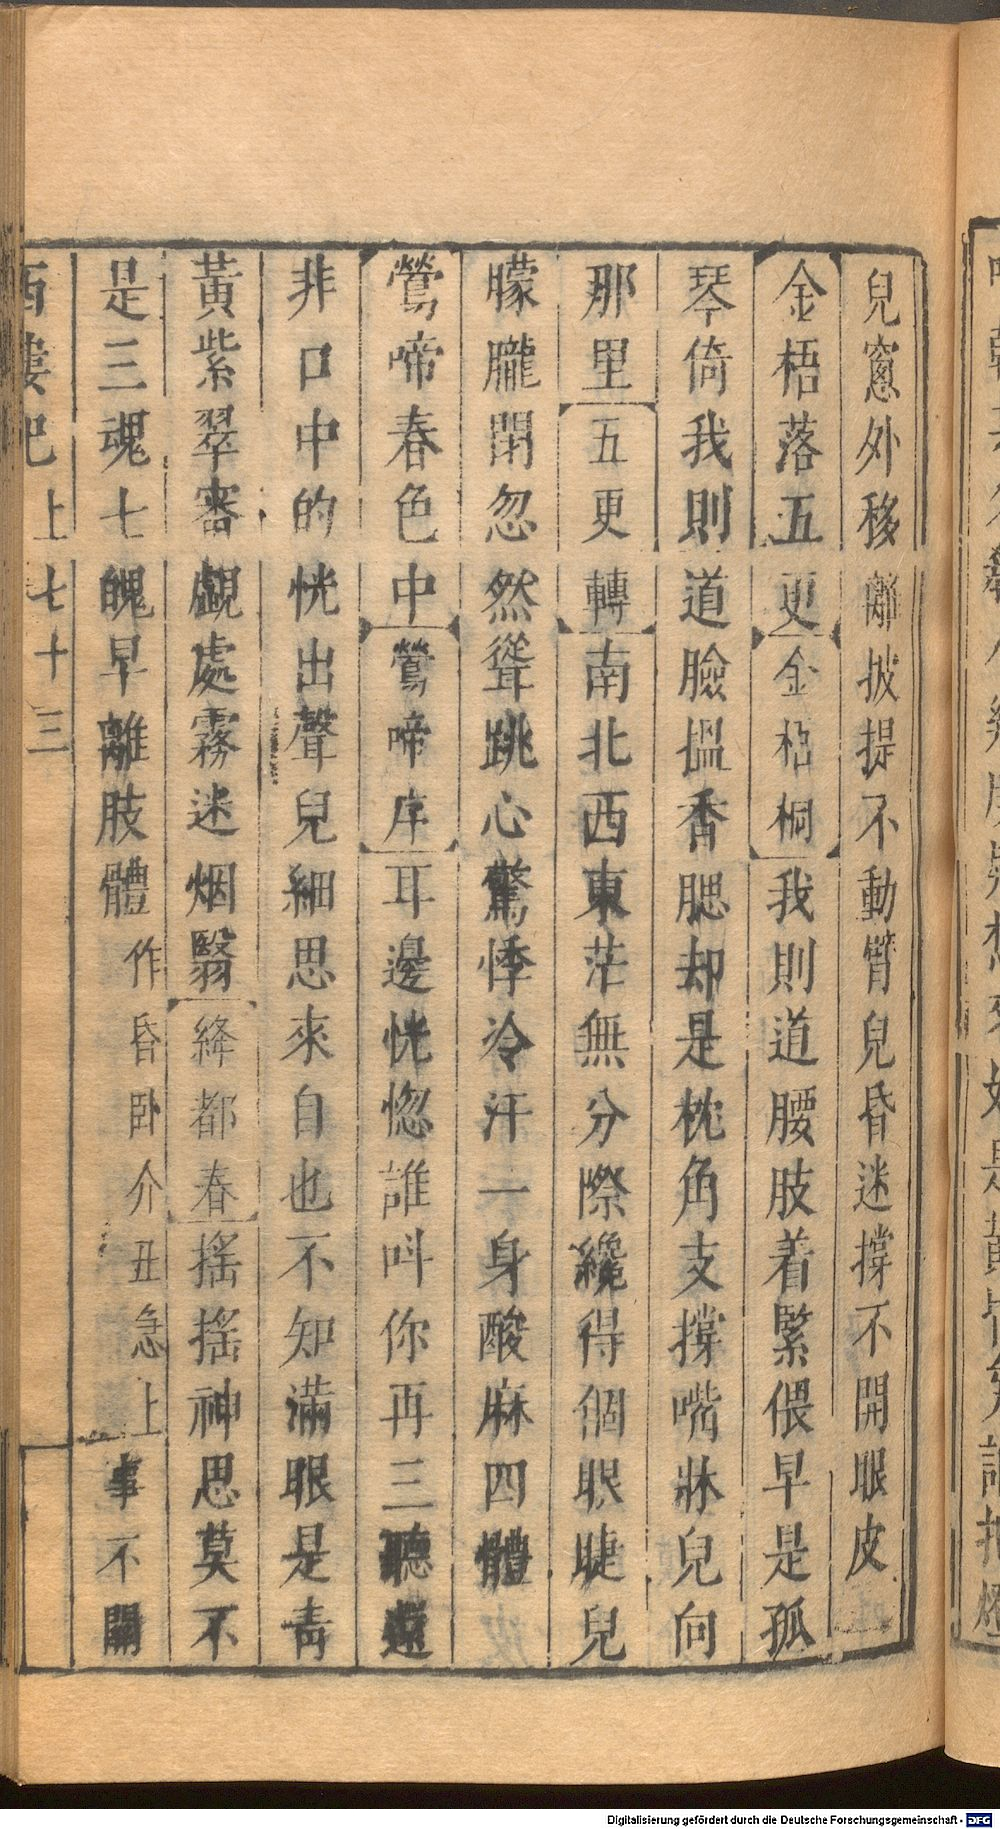 兒窻外移離披提不動臂兒昏迷撐不開眼皮
金梧落五更金梧桐我則道腰肢着緊偎早是孤
琴倚我則道臉搵香腮却是枕角支撐嘴牀兒向
那里五更轉南北西東茫無分際纔得個眼睫兒
朦朧閉忽然聳跳心驚悸冷汗一身酸麻四體
鶯啼春色中鶯啼序耳邊恍惚誰呌你再三聽還
非口中的恍出聲兒細思來自也不知滿眼是青
黃紫翠審覷處霧迷烟翳絳都春搖搖神思莫不
是三魂七魄早離肢體作昏卧介丑急上事不關
西樓記上七十三
Digitalisierung gefördert durch die Deutsche Forschungsgemeinschaft - DFG